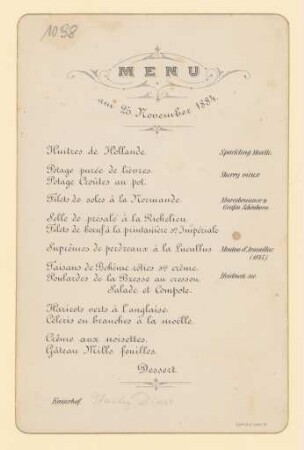 1098
MENU
am 25. November 1884.
Huîtres de Hollande.
Sparkling Moselle.
Potage purée de lièvres.
Sherry vieux
Potage Croûtes au pot.
Filets de soles à la Normande.
Selle de présalé à la Richelieu.
Filets de boeuf à la printanière sce Impériale
Suprêmes de perdreaux à la Lucullus
(1875.)
Faisans de Bohême rôties sce crême.
Poulardes de la Bresse au cresson
Salade et Compote.
Haricots verts à l'anglaise.
Céleris en branches à la moëlle.
Crême aux noisettes.
Gâteau Mille feuilles.
Dessert.
Kaiserhof.